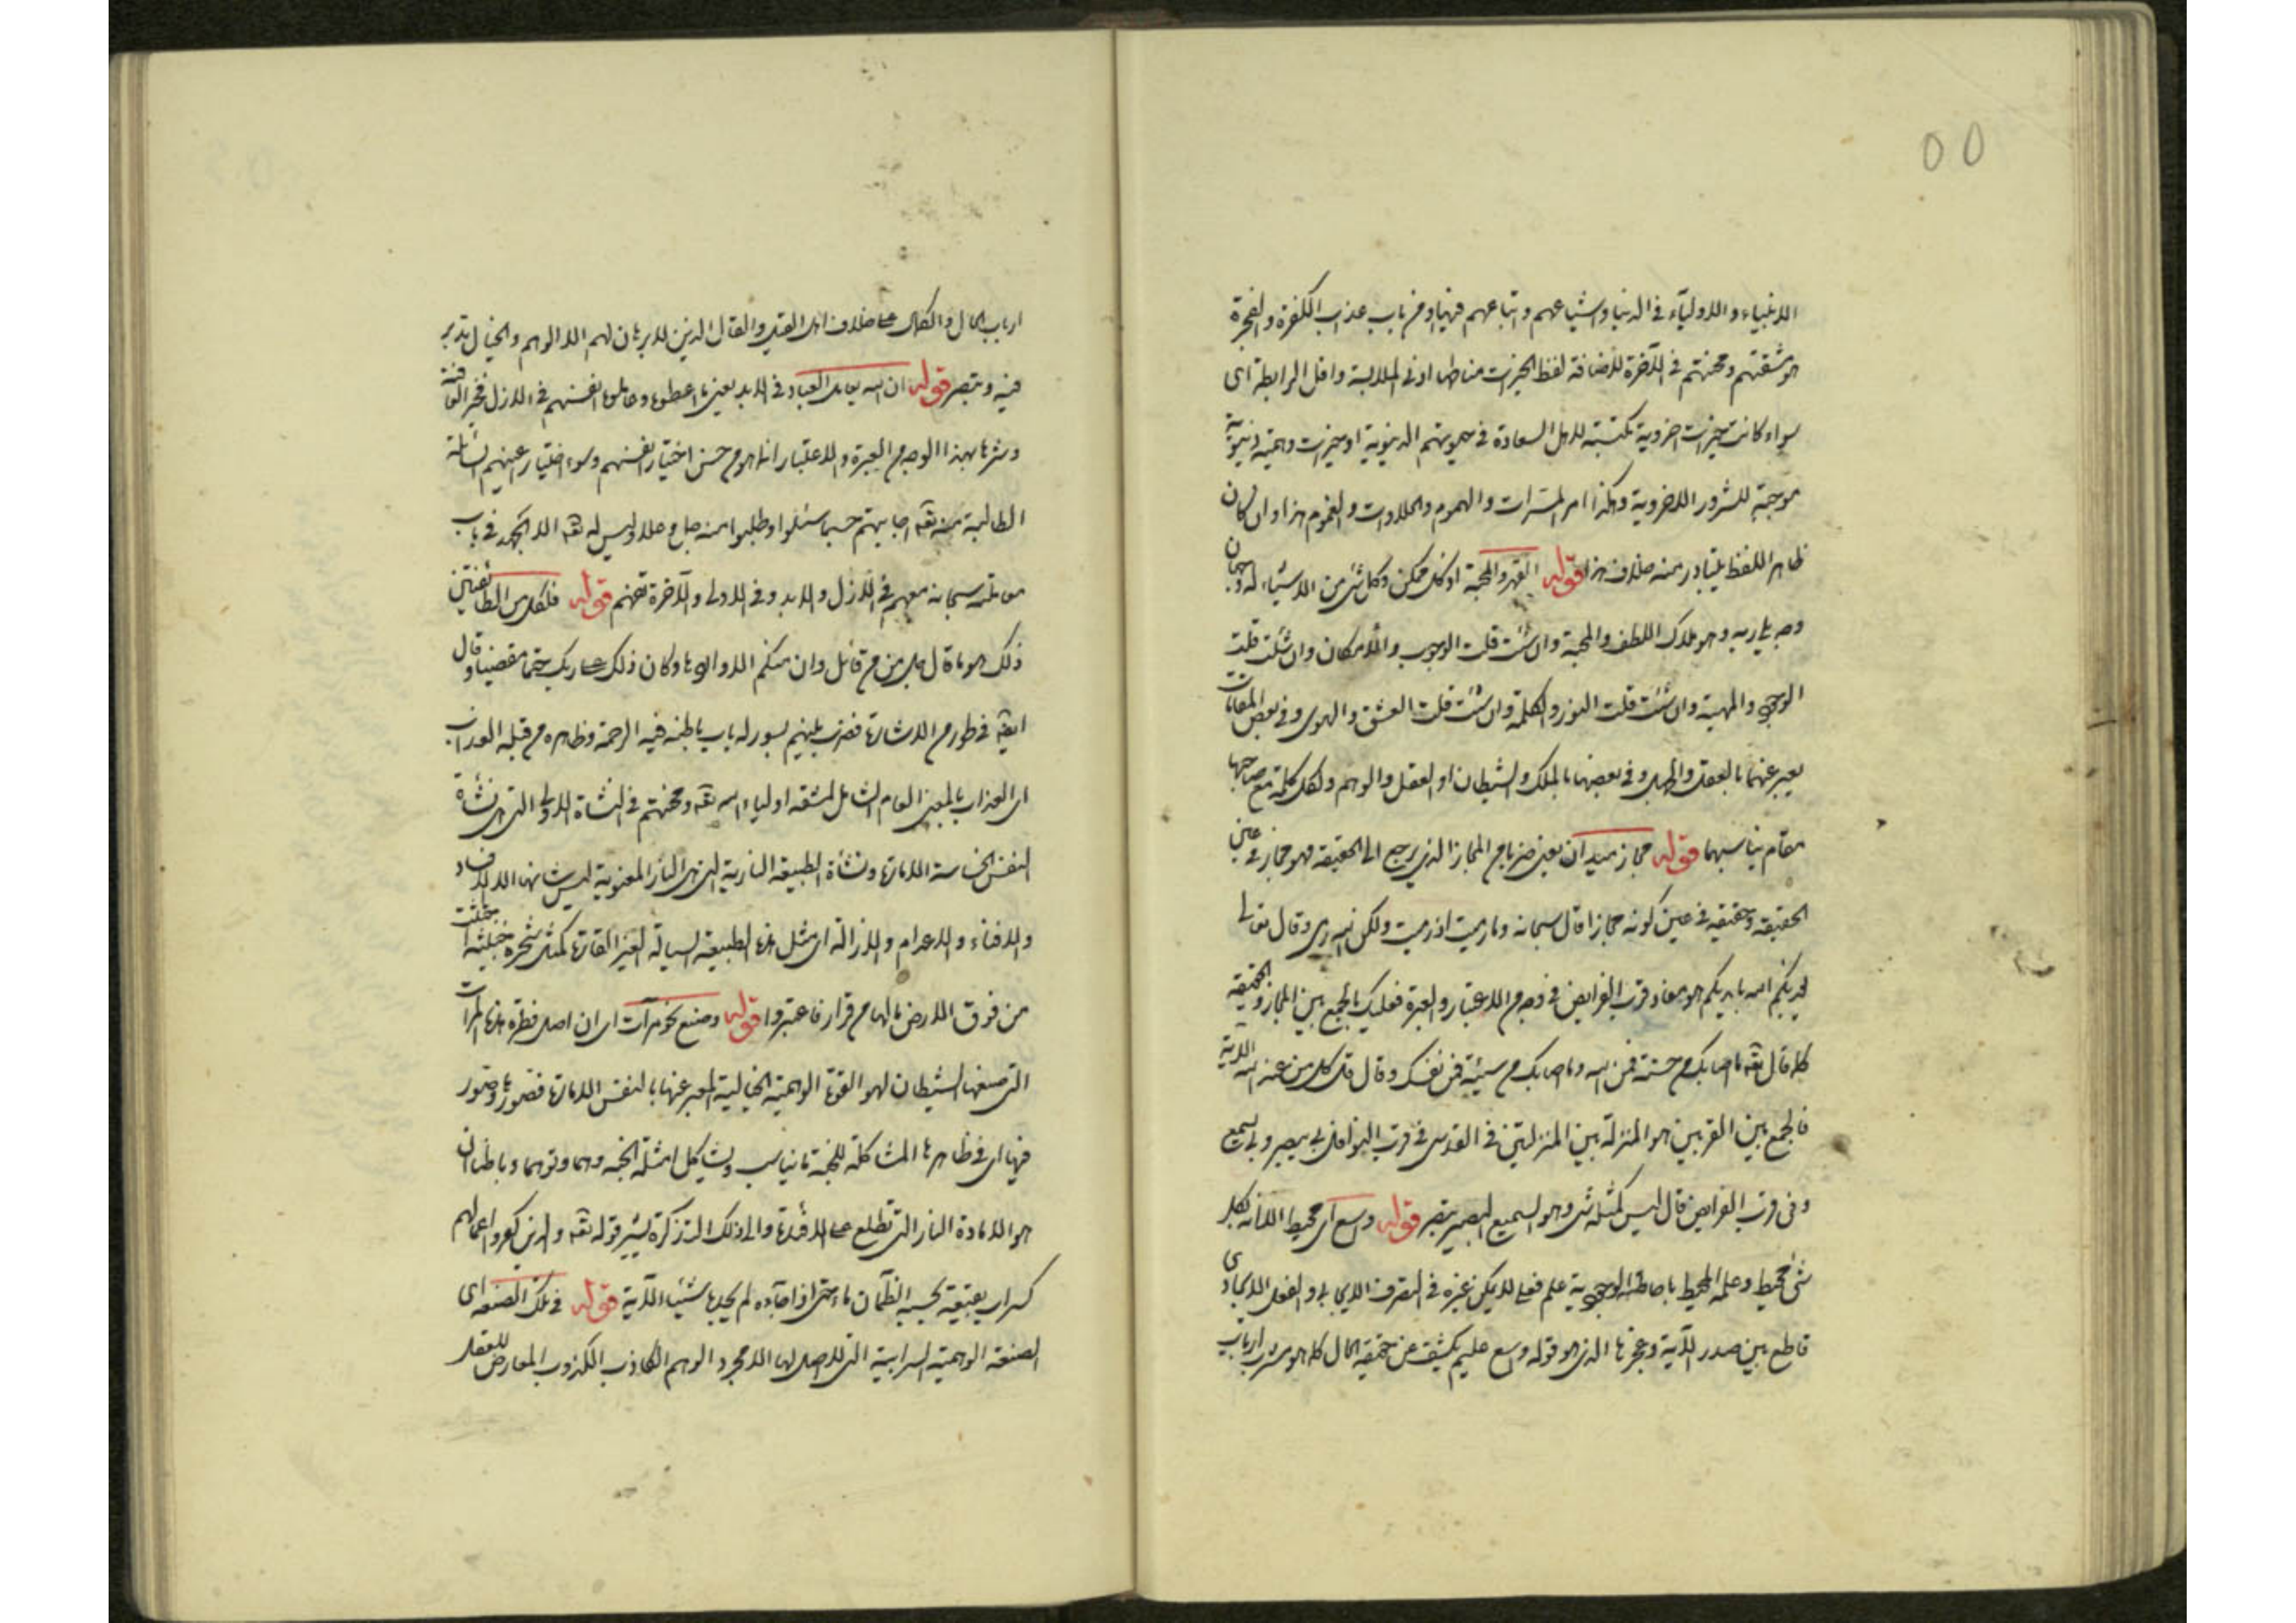 ٥٥
الانبياء والاولياء في الدنيا واشياعهم واتباعهم فيها ومن باب عذاب الكفرة والفجرة
ومشقتهم ومحنتهم في الآخرة للاضافة لفظ الخيرات مناطها ادنى الملابسة واقل الرابطة اى
سواء كانت خيرات اخروية مكتسبة لاهل السعادة في حيوتهم الدنيوية او خيرات وهمية دنيوية
موجبة للشرور الاخروية وهكذا امر المسرات والهموم والحلاوات والغموم هذا وان كان
ظاهر اللفظ يتبادر منه خلاف هذا قوله القهر والمحبة اذ كل ممكن وكل شئ من الاشياء له وجهان
وجه يلى ربه وهو ملاك اللطف والمحبة وان شئت قلت الوجوب والامكان وان شئت قلت
الوجود والمهية وان شئت قلت النور والظلمة وان شئت قلت العشق والهوى وفى بعض المقامات
يعبر عنهما بالعقل والجهل وفى بعضها بالملك والشيطان او العقل والوهم ولكل كلمة مع صاحبها
مقام يناسبهما قوله مجاز ميدان يعنى ضربا من المجاز الذى يرجع الى الحقيقة فهو مجاز فى عين
الحقيقة وحقيقة فى عين كونه مجازا قال سبحانه وما رميت اذ رميت ولكن الله رمى وقال تعالى
يعذبكم الله بايديكم هو مفاد قرب الفرايض فى وجه من الاعتبار والعبرة فعليك بالجمع بين المجاز والحقيقة
كما قال تعه ما اصابك من حسنة فمن الله وما اصابك من سيئة فمن نفسك وقال قل كل من عند الله الاية
فالجمع بين القربين هو المنزلة بين المنزلتين فى القدسى فى قرب النوافل بى يبصر وبى يسمع
وفى قرب الفرايض قال ليس كمثله شئ وهو السميع البصير تبصر قوله واسع اى محيط لانه بكل
شئ محيط وعلمه المحيط باحاطته الوجودية علم فعلى لا يكون غيره فى التصرف الايجابى والفعل الايجادى
قاطع بين صدر الآية وعجزها الذى هو قوله واسع عليم يكشف عن حقيقة الحال كما هو مشرب ارباب
ارباب الحال والكمال على خلاف اهل القيل والقال الذين لا برهان لهم الا الوهم والخيال تدبر
فيه وتبصر قوله ان الله يعامل العباد فى الابد يعنى ما اعطوها وعاملوها انفسهم فى الازل فخير العاقبة
وشرها بهذا الوجه من العبرة والاعتبار انما هو من حسن اختيار انفسهم وسوء اختيار اعينهم السائلة
الطالبة منه تعه اجابتهم حسبما سئلوا وطلبوا منه جل وعلا وليس له تعه الا الحمد فى باب
معاملته سبحانه معهم فى الازل والابد وفى الاولى والآخرة تفهم قوله فلكل من الطائفتين
ذلك هو ما قال جل من قائل وان منكم الا واردها وكان ذلك على ربك حتما مقضيا وقال
ايضا فى طور من الاشارة فضرب بينهم بسور له باب باطنه فيه الرحمة وظاهره من قبله العذاب
اى العذاب بالمعنى العام الشامل لمشقة اولياء الله تعه ومحنتهم فى النشاة الاولى التى هى نشأة
النفس الحساسة الامارة ونشأة الطبيعة النارية التى هى النار المعنوية ليس شانها الا الافساد
والافناء والاعدام والازالة اى مثل هذه الطبيعة السيالة الغير القارة كمثل شجرة خبيثة اجتثت
من فوق الارض ما لها من قرار فاعتبروا قوله وصنع نحو مرآت اى ان اصل فطرة هذه المرآت
التى صنعها الشيطان لهو القوة الوهمية الخيالية المعبر عنها بالنفس الامارة فصورها وتصور
فيها اى فى ظاهرها المشاكلة للجنة ما يناسب ويشاكل امثلة الجنه وهما وتوهما وباطنها ان
هو الا مادة النار التى تطلع على الافئدة والى ذلك التذكرة يشير قوله تعه والذين كفروا اعمالهم
كسراب بقيعة يحسبه الظمآن ماء حتى اذا جآءه لم يجده شيئا الآية قوله فى تلك الصنعة اى
الصنعة الوهمية السرابية التى لا اصل لها الا مجرد الوهم الكاذب الكذوب المعارض للعقل